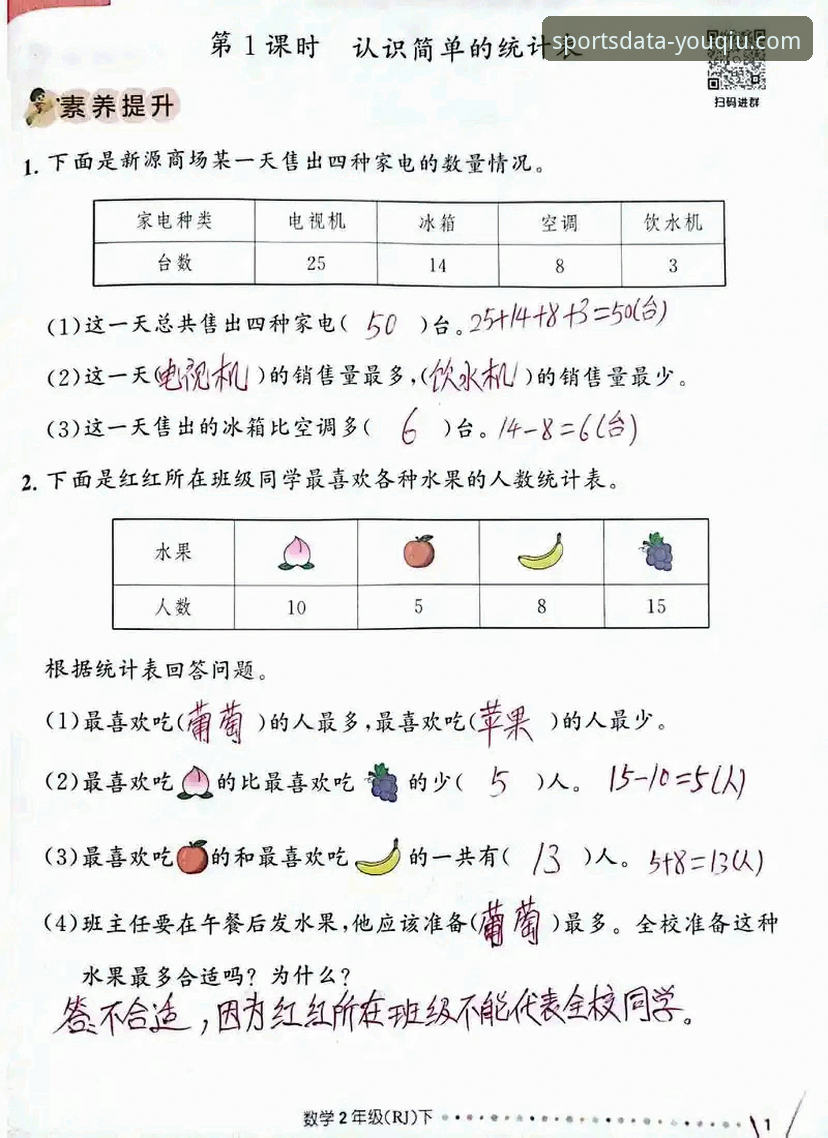 第1课时 认识简单的统计表
sportsdata-youqiu.com
扫码进群
素养提升
1. 下面是新源商场某一天售出四种家电的数量情况。
家电种类 电视机 冰箱 空调 饮水机
台数 25 14 8 3
(1)这一天总共售出四种家电( 50 )台。25+14+8+3=50(台)
(2)这一天(电视机)的销售量最多,(饮水机)的销售量最少。
(3)这一天售出的冰箱比空调多( 6 )台。14-8=6(台)
2. 下面是红红所在班级同学最喜欢各种水果的人数统计表。
水果
人数 10 5 8 15
根据统计表回答问题。
(1)最喜欢吃(葡萄)的人最多,最喜欢吃(苹果)的人最少。
(2)最喜欢吃 的比最喜欢吃 的少( 5 )人。 15-10=5(人)
(3)最喜欢吃 的和最喜欢吃 的一共有( 13 )人。 5+8=13(人)
(4)班主任要在午餐后发水果,他应该准备(葡萄)最多。全校准备这种
水果最多合适吗?为什么?
答:不合适,因为红红所在班级不能代表全校同学。
数学2年级(RJ)下 1